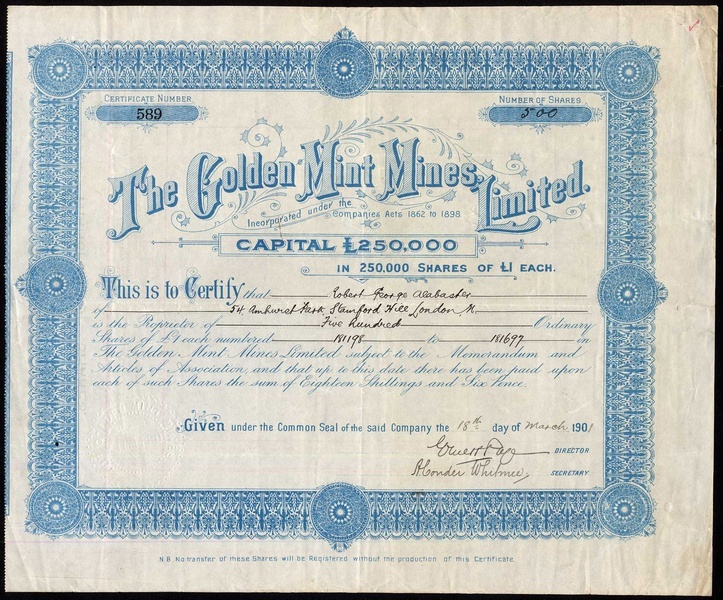 CERTIFICATE NUMBER
589
NUMBER OF SHARES
500
The Golden Mint Mines, Limited.
Incorporated under the Companies Acts 1862 to 1898
CAPITAL £250,000
IN 250,000 SHARES OF £1 EACH.
This is to Certify that Robert George Alabaster
of 54 Amhurst Park, Stamford Hill London N.
is the Proprietor of Five hundred Ordinary
Shares of £1 each numbered 181198 to 181697 in
The Golden Mint Mines Limited subject to the Memorandum and
Articles of Association, and that up to this date there has been paid upon
each of such Shares the sum of Eighteen Shillings and Six Pence.
Given under the Common Seal of the said Company the 18th day of March 1901
DIRECTOR
A Conder Whitmee, SECRETARY
N.B. No transfer of these Shares will be Registered without the production of this Certificate